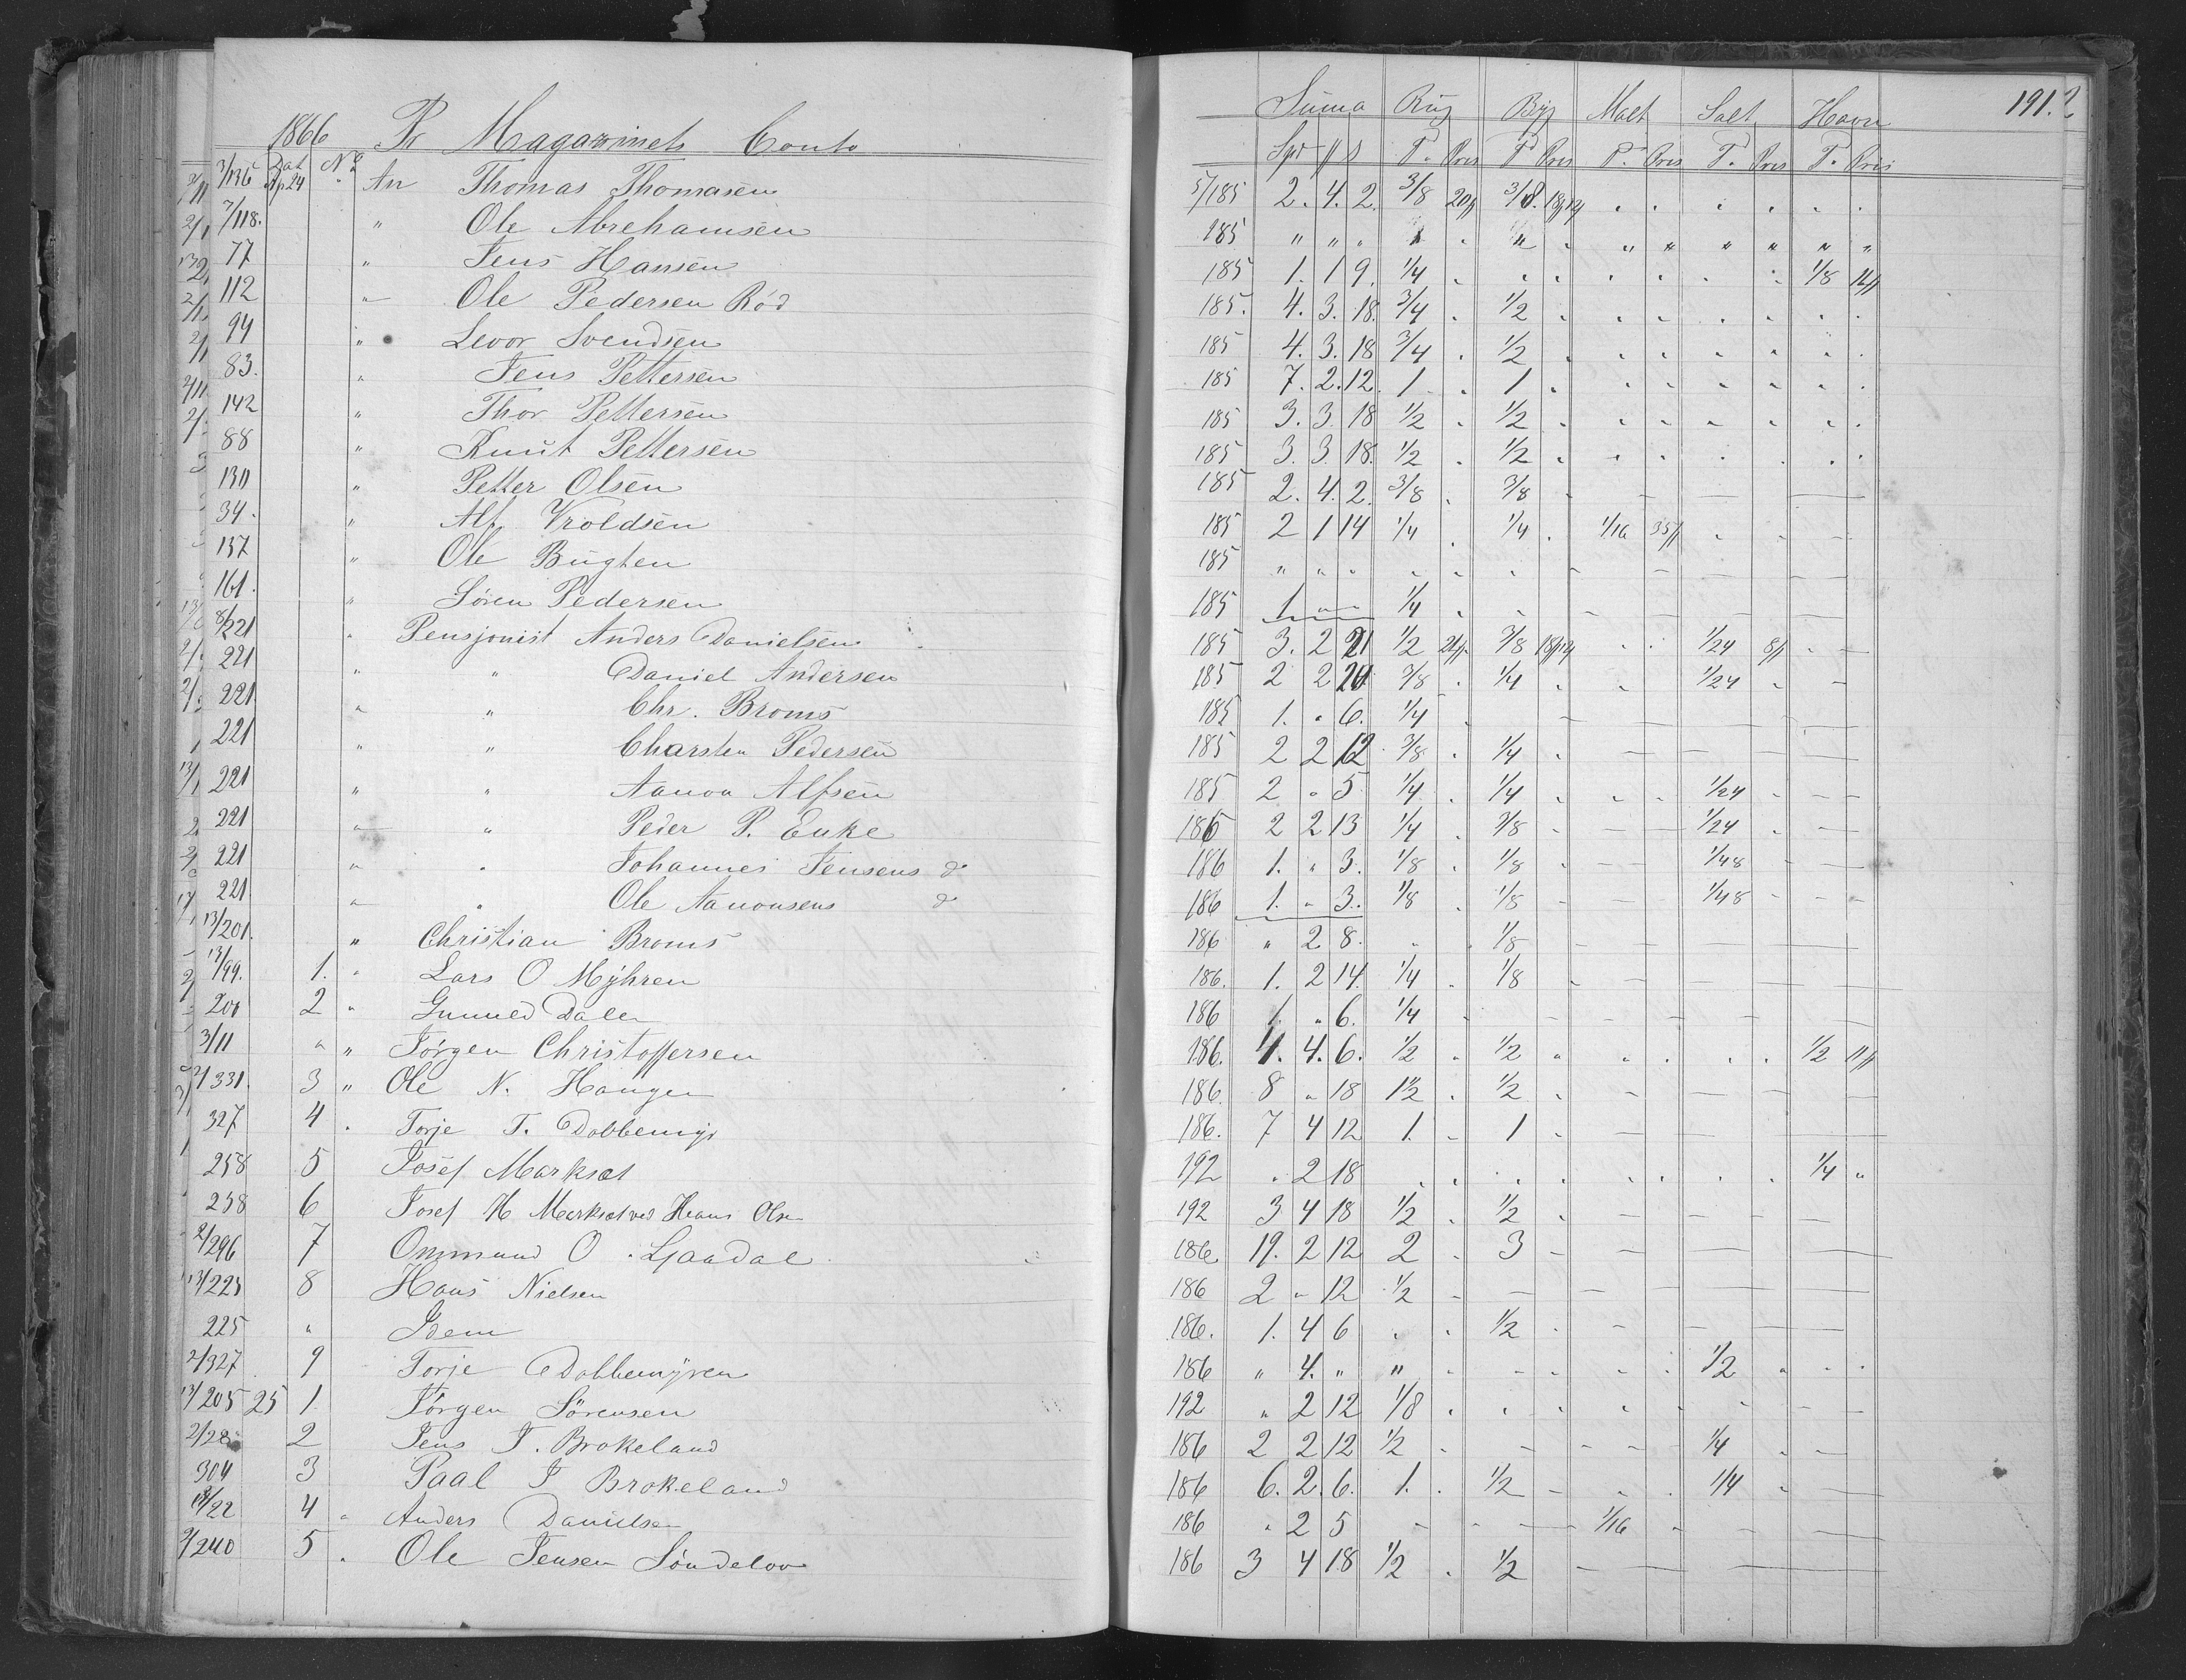 191.
1866 Pr Magazinets Conto Suma Rug Byg Malt Salt Havre
Dat No Spd # ß T. Pris T. Pris T. Pris T. Pris T. Pris
3/136 Ap 24 An Thomas Thomasen 5/185 2. 4. 2. 3/8 3/8
7/118. " Ole Abrehamsen 185 " " " " " " " " " "
77 " Jens Hansen 185 1. 1 9. 1/4 1/8
112 " Ole Pedersen Röd 185. 4. 3. 18. 3/4 1/2
94 " Levor Svendsen 185 4. 3. 18 3/4 1/2
83. " Jens Pettersen 185 7. 2. 12. 1 1
142 " Thor Pettersen 185 3. 3 18 1/2 1/2
88 " Knut Pettersen 185 3. 3 18. 1/2 1/2
130 " Petter Olsen 185 2. 4. 2. 3/8 3/8
34. " Alf Vroldsen 185 2 1 14 1/4 1/4 1/16
137 " Ole Bugten 185 " " "
161. " Sören Pedersen 185 1 " " 1/4
8/221 " Pensjonist Anders Danielsen 185 3. 2 21 1/2 3/8 1/24
221 " " Daniel Andersen 185 2 2 3/8 1/4 1/24
221 " " Chr. Broms 185 1. " 6. 1/4
221 " " Charsten Pedersen 185 2 2 12 3/8 1/4
221 " " Aanon Alfsen 185 2 " 5 1/4 1/4 1/24
221 " " Peder P. Enke 186 2 2 13 1/4 3/8 1/24
221 " " Johannes Jensens do 186 1. " 3. 1/8 1/8 1/48
221 " " Ole Aanonsens do 186 1. " 3. 1/8 1/8 1/48
13/201. " Christian Broms 186 " 2 8. 1/8
13/199. 1. " Lars O Myhren 186. 1. 2 14. 1/4 1/8
200 2 " Gunuld Dalen 186 1. " 6. 1/4
3/11 " " Jörgen Christoffersen 186. 4. 4. 6. 1/2 1/2 1/2
2/331. 3 " Ole N. Haugen 186. 8 " 18 1 1/2 1/2
327 4 " Torje T. Dobbemyr 186. 7 4 12 1. 1
258 5 Josef Marksæt 192 " 2 18 1/4 "
258 6 Josef H Marksæt ved Hans Olsen 192 3 4 18 1/2 1/2
2/296 7 Ommund O. Ljaadal 186. 19. 2 12 2 3
13/225 8 Hans Nielsen 186 2 " 12 1/2
225 " Idem 186. 1. 4 6 1/2
2/327 9 Torje Dobbemyren 186 " 4. " " 1/2
13/205 25 1. Jörgen Sörensen 192 " 2 12 1/8
2/28 2 Jens T. Brokeland 186 2 2 12 1/2 1/4
304 3 Paal J Brokeland 186 6. 2. 6. 1. 1/2 1/4
4 " Anders Danielsen 186 " 2 5 1/16
2/240 5 " Ole Jensen Söndelov 186 3 4 18 1/2 1/2